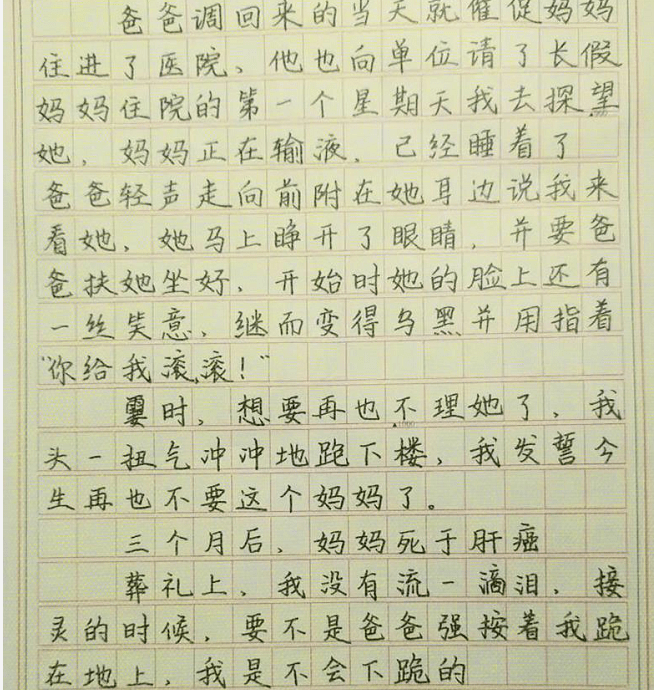 爸爸调回来的当天就催促妈妈
住进了医院、他也向单位请了长假
妈妈住院的第一个星期天我去探望
她，妈妈正在输液，已经睡着了
爸爸轻声走向前附在她耳边说我来
看她，她马上睁开了眼睛，并要爸
爸扶她坐好，开始时她的脸上还有
一丝笑意，继而变得乌黑并用指着
“你给我滚，滚！”
霎时，想要再也不理她了，我
头一扭气冲冲地跑下楼，我发誓今
生再也不要这个妈妈了。
三个月后，妈妈死于肝癌
葬礼上，我没有流一滴泪，接
灵的时候，要不是爸爸强按着我跪
在地上，我是不会下跪的